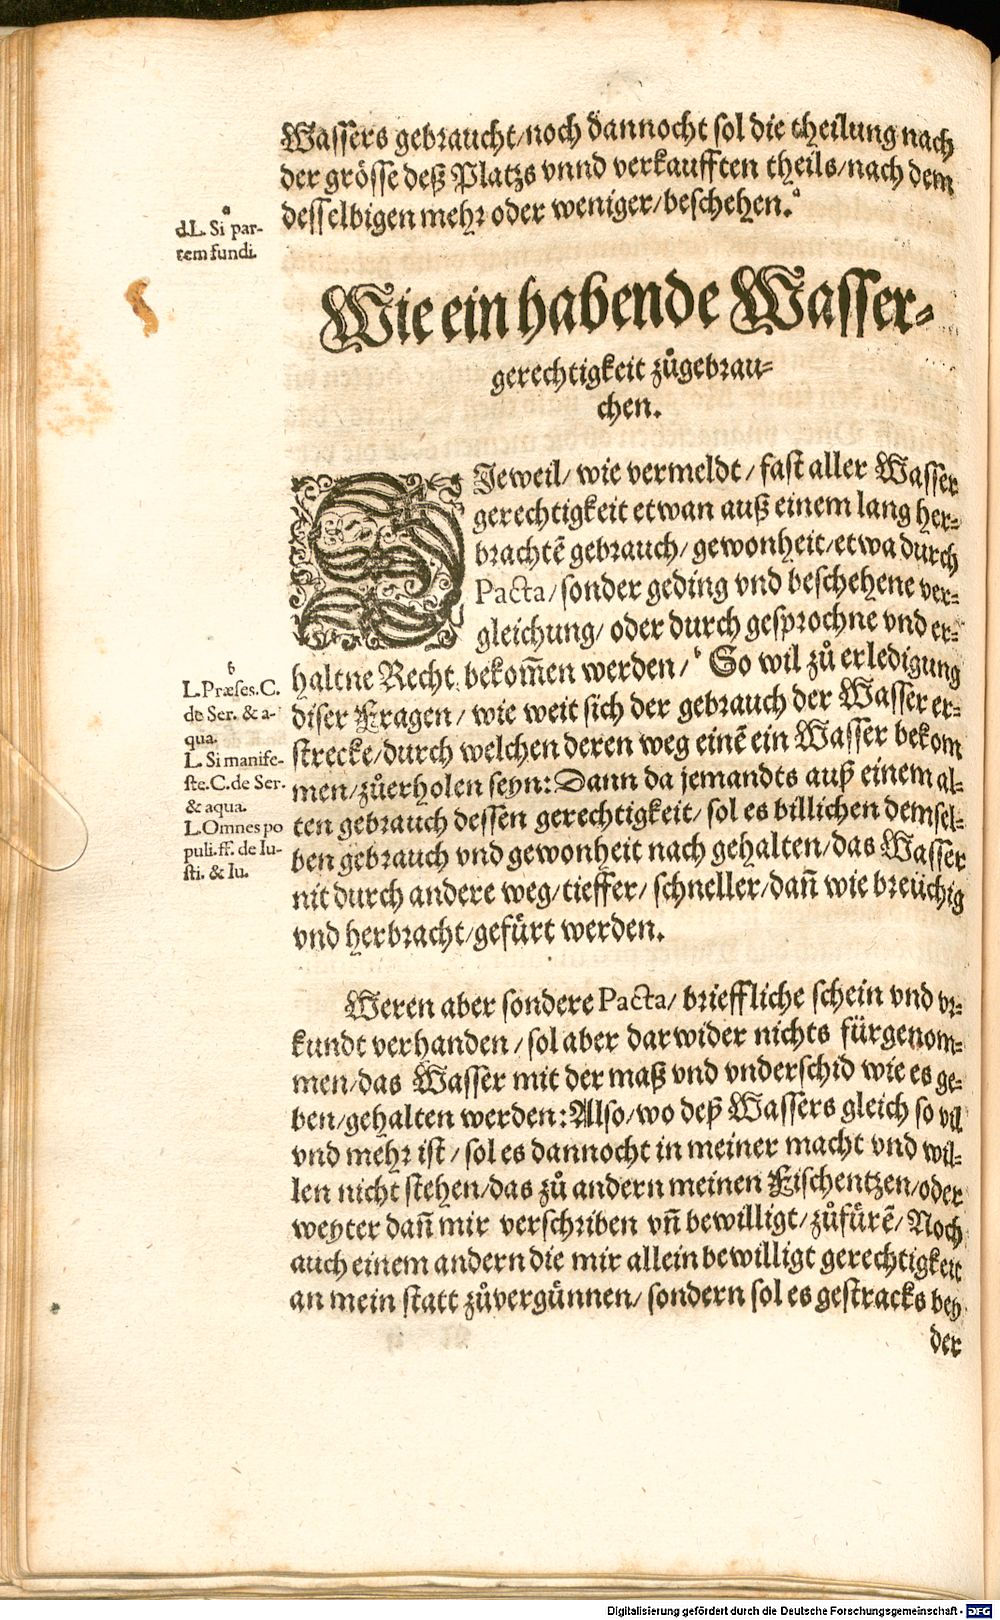 Wassers gebraucht/noch dannocht sol die theilung nach
der grösse deß Platzs vnnd verkaufften theils/nach dem
desselbigen mehr oder weniger/beschehen.ᵃ
a
d.L. Si par-
tem fundi.
Wie ein habende Wasser-
gerechtigkeit zůgebrau-
chen.
DIeweil/ wie vermeldt/ fast aller Wasser
gerechtigkeit etwan auß einem lang her-
brachtē gebrauch/ gewonheit/etwa durch
Pacta/sonder geding vnd beschehene ver-
gleichung/ oder durch gesprochne vnd er-
haltne Recht bekom̃en werden/ᵇ So wil zů erledigung
diser Fragen/ wie weit sich der gebrauch der Wasser er-
strecke/durch welchen deren weg einē ein Wasser bekom
men/zůerholen seyn: Dann da jemandts auß einem al-
ten gebrauch dessen gerechtigkeit/ sol es billichen demsel-
ben gebrauch vnd gewonheit nach gehalten/das Wasser
nit durch andere weg/tieffer/ schneller/dañ wie breüchig
vnd herbracht/gefürt werden.
b
L.Præses.C.
de Ser. & a-
qua.
L. Si manife-
ste.C.de Ser.
& aqua.
L.Omnes po
puli.ff. de Iu-
sti. & Iu.
Weren aber sondere Pacta/ brieffliche schein vnd vr-
kundt verhanden/sol aber darwider nichts fürgenom-
men/das Wasser mit der maß vnd vnderschid wie es ge-
ben/gehalten werden: Also/wo deß Wassers gleich so vil
vnd mehr ist/ sol es dannocht in meiner macht vnd wil-
len nicht stehen/das zů andern meinen Fischentzen/oder
weyter dañ mir verschriben vñ bewilligt/zůfürē/ Noch
auch einem andern die mir allein bewilligt gerechtigkeit
an mein statt zůvergünnen/ sondern sol es gestracks bey
der
Digitalisierung gefördert durch die Deutsche Forschungsgemeinschaft - DFG